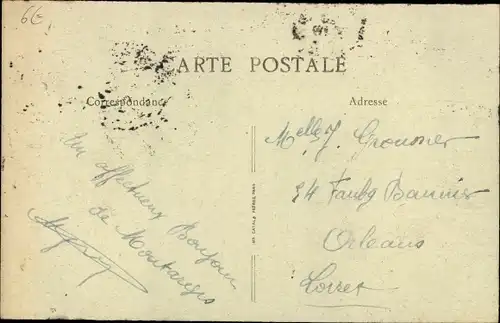 6€
CARTE POSTALE
Correspondance
Adresse
Un affectueux Bonjour
de Montargis
Melle J.
24 Faubg Bannier
Orleans
Loiret